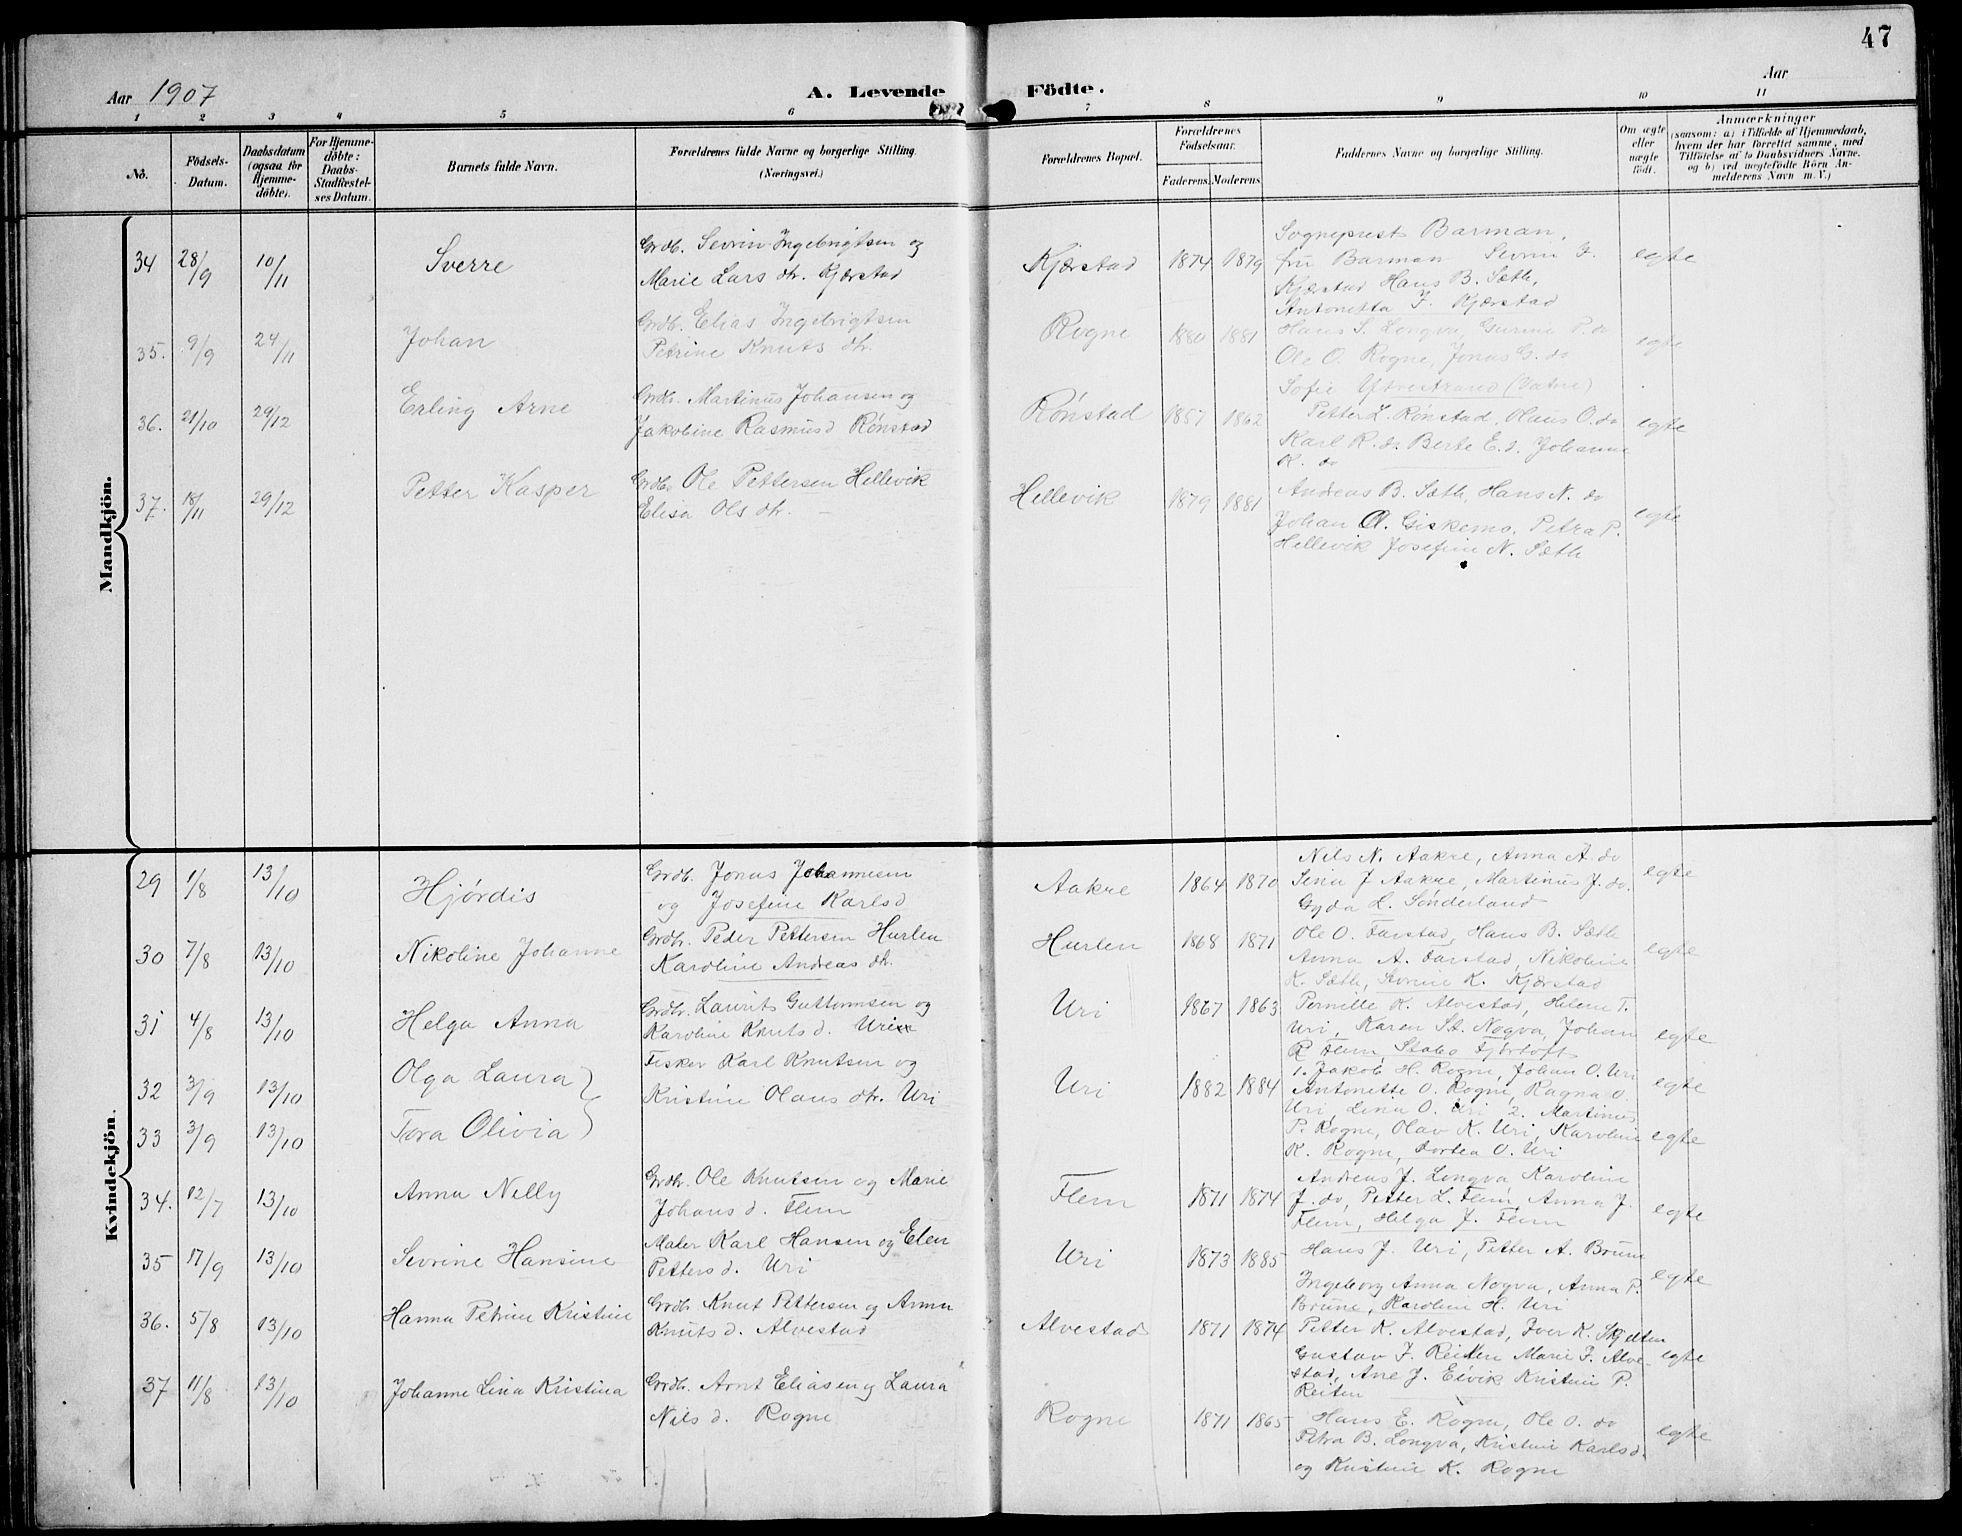 47
Aar 1907
A. Levende Födte.
Aar
1 2 3 4 5 6 7 8 9 10 11
No.
Födsels-Datum.
Daabsdatum (ogsaa for Hjemmedöbte).
For Hjemmedöbte: Daabs-Stadfæstelses Datum.
Barnets fulde Navn.
Forældrenes fulde Navne og borgerlige Stilling. (Næringsvei.)
Forældrenes Bopæl.
Forældrenes Födselsaar.
Faderens. Moderens.
Faddernes Navne og borgerlige Stilling.
Om ægte eller uægte födt.
Anmærkninger
(saasom: a) i Tilfælde af Hjemmedaab, hvem der har forrettet samme, med Tilföielse af to Daabsvidners Navne, og b) ved uægtefödte Börn, Anmelderens Navn m. V.)
Mandkjön.
34 28/9 10/11 Sverre
Grdb. Sevrin Ingebrigtsen og
Marie Lars dtr. Kjærstad
Kjærstad 1874 1879
Sogneprest Barman,
fru Barman Sevrin F.
Kjærstad Hans B. Sæth,
Antonetta F. Kjærstad
egte
35. 9/9 24/11 Johan
Grdb. Elias Ingebrigtsen
Petrine Knuts dtr.
Rogne 1880 1881
Hans S. Longva, Gurine P. do
Ole O. Rogne, Jonas G. do
Sofie Ytrestrand (Vatne)
egte
36. 21/10 29/12 Erling Arne
Grdb. Martinus Johansen og
Jakobine Rasmusd Rönstad
Rönstad 1857 1862
Petter L. Rønstad, Olaus O. do
Karl R. do Berte E. d. Johanne
K. do
egte
37. 18/11 29/12 Petter Kasper
Grdb. Ole Pettersen Hellevik
Elisa Ols dtr.
Hellevik 1879 1881
Andreas B. Sæth, Hans N. do
Johan A. Giskemo, Petra P.
Hellevik Josefine N. Sæth
egte
Kvindekjön.
29 1/8 13/10 Hjördis
Grdb. Jonas Johannesen
og Josefine Karlsd
Aakre 1864 1870
Nils N. Aakre, Anna A. do
Sina J Aakre, Martinus J. do.
Gyda L. Sönderland
egte
30 7/8 13/10 Nikoline Johanne
Grdb. Peder Pettersen Hurlen
Karoline Andreas dtr.
Hurlen 1868 1871
Ole O. Farstad, Hans B. Sæth
Anna A. Farstad, Nikoline
K. Sæth, Sevrine K. Kjærstad
egte
31 4/8 13/10 Helga Anna
Grdb. Laurits Guttormsen og
Karoline Knuts d. Uri
Uri 1867 1863
Pernille K. Alvestad, Helene T.
Uri, Karen St. Nogva, Johan
R Flem, Fjörtoft
egte
32 3/9 13/10 Olga Laura
33 3/9 13/10 Tora Olivia
Fisker Karl Knutsen og
Kristine Olaus dtr. Uri
Uri 1882 1884
1. Jakob H. Rogne, Johan O. Uri
Antonette O. Rogne, Ragna O.
Uri, Lina O. Uri 2. Martinus
P. Rogne, Olav K. Uri, Karoline
K. Rogne, Dortea O. Uri
egte
egte
34. 12/7 13/10 Anna Nelly
Grdb. Ole Knutsen og Marie
Johans d. Flem
Flem 1871 1874
Andreas J. Longva Karoline
J. do, Petter L. Flem, Anna J.
Flem, Helga J. Flem
egte
35 17/9 13/10 Sevrine Hansine
Maler Karl Hansen og Elen
Petters d. Uri
Uri 1873 1885
Hans J. Uri, Petter A. Brune
Ingeborg Anna Nogva, Anna P.
Brune, Karoline H. Uri
egte
36. 5/8 13/10 Hanna Petrine Kristine
Grdb. Knut Pettersen og Anna
Knuts d. Alvestad
Alvestad 1871 1874
Petter K. Alvestad, Iver K. Skjelten
Gustav J. Reiten Marie P. Alve-
stad, Ane J. Eivik Kristine P.
Reiten
egte
37 11/8 13/10 Johanne Lina Kristina
Grdb. Arnt Eliasen og Laura
Nils d. Rogne
Rogne 1871 1865
Hans E. Rogne, Ole O. do
Petra B. Longva, Kristine Karlsd.
og Kristine K. Rogne
egte